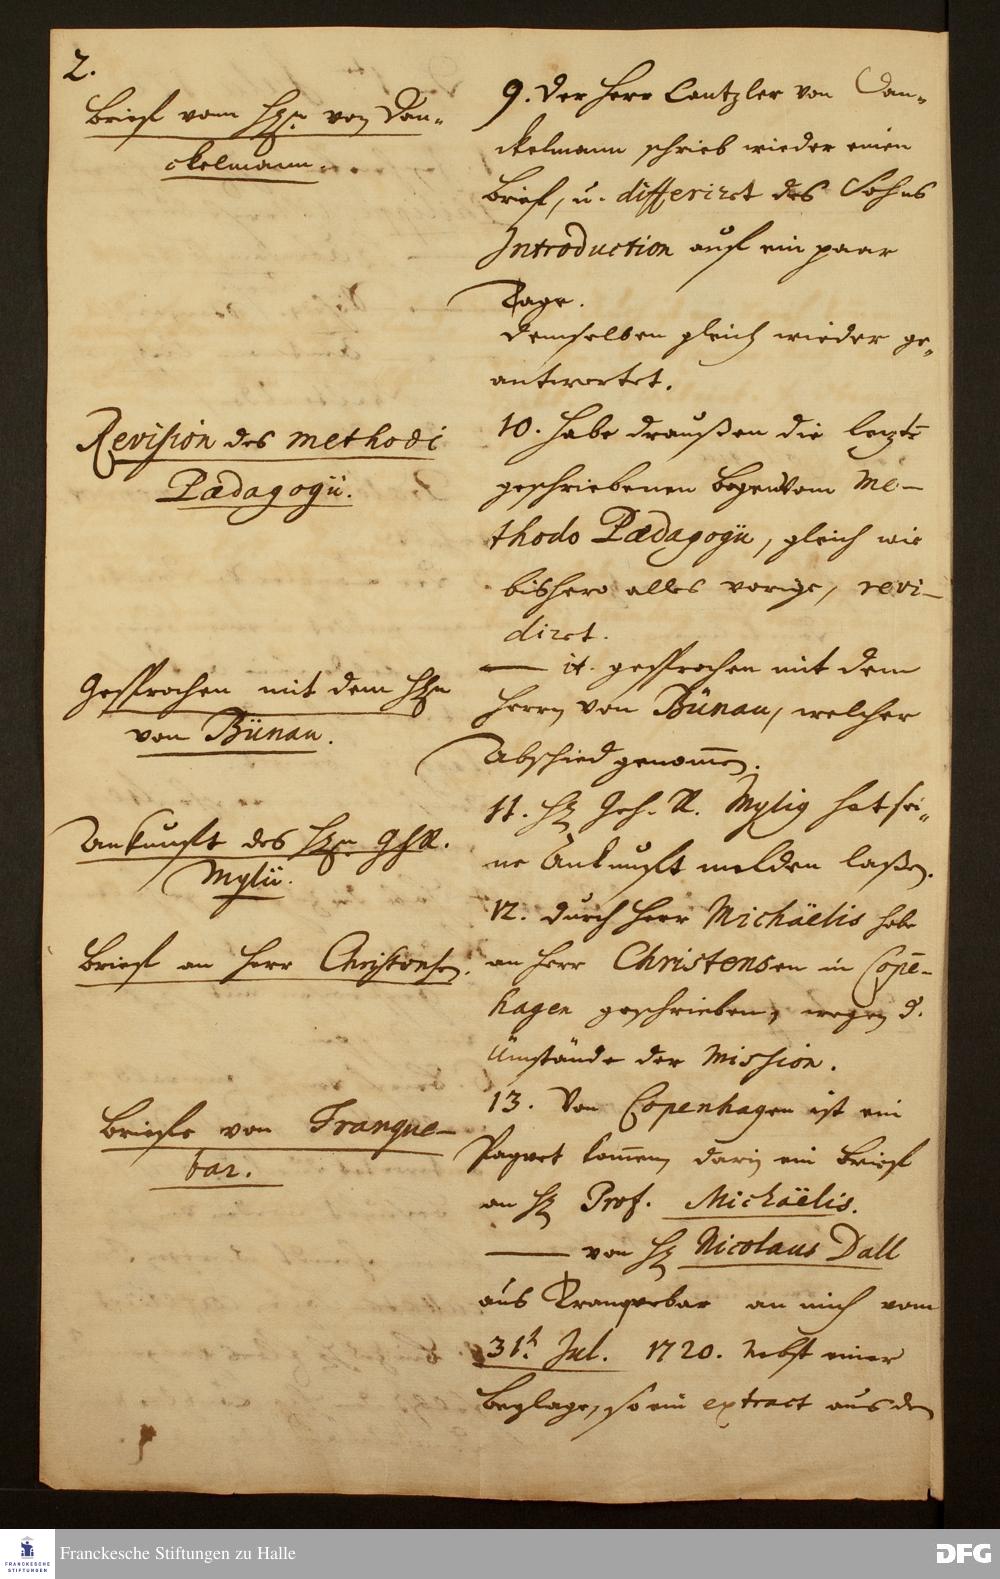 2.
Brief vom Hrn. von Dan-
ckelmann.
9. Der Herr Cantzler von Dan-
ckelmann schrieb wieder einen
Brief, u. differiret des Sohns
Introduction auf ein paar
Tage.
Demselben gleich wieder ge-
antwortet.
Revision des methodi
Pædagogii.
10. Habe draußen die letzte
geschriebenen Bogen vom Me-
thodo Pædagogii, gleich wie
bishero alles vorige, revi-
diret.
Gesprochen mit dem Hrn
von Bünau.
— it. gesprochen mit dem
Herrn von Bünau, welcher
Abschied genommen.
Ankunft des Hrn. GhR.
Mylii.
11. Hr. Geh. R. Mylig hat sei-
ne Ankunft melden laßen.
Brief an Herr Christensen.
12. Durch Herr Michäelis habe
an Herr Christensen in Cope-
hagen geschrieben, wegen d.
Umstände der Mission.
Briefe von Tranque-
bar.
13. Von Copenhagen ist ein
Paquet kommen, darin ein Brief
an Hr. Prof. Michäelis.
— von Hr. Nicolaus Dall
aus Tranquebar an mich vom
31t. Jul. 1720. nebst einer
Beylage, so ein extract aus den
Franckesche Stiftungen zu Halle
FRANCKESCHE
STIFTUNGEN
DFG